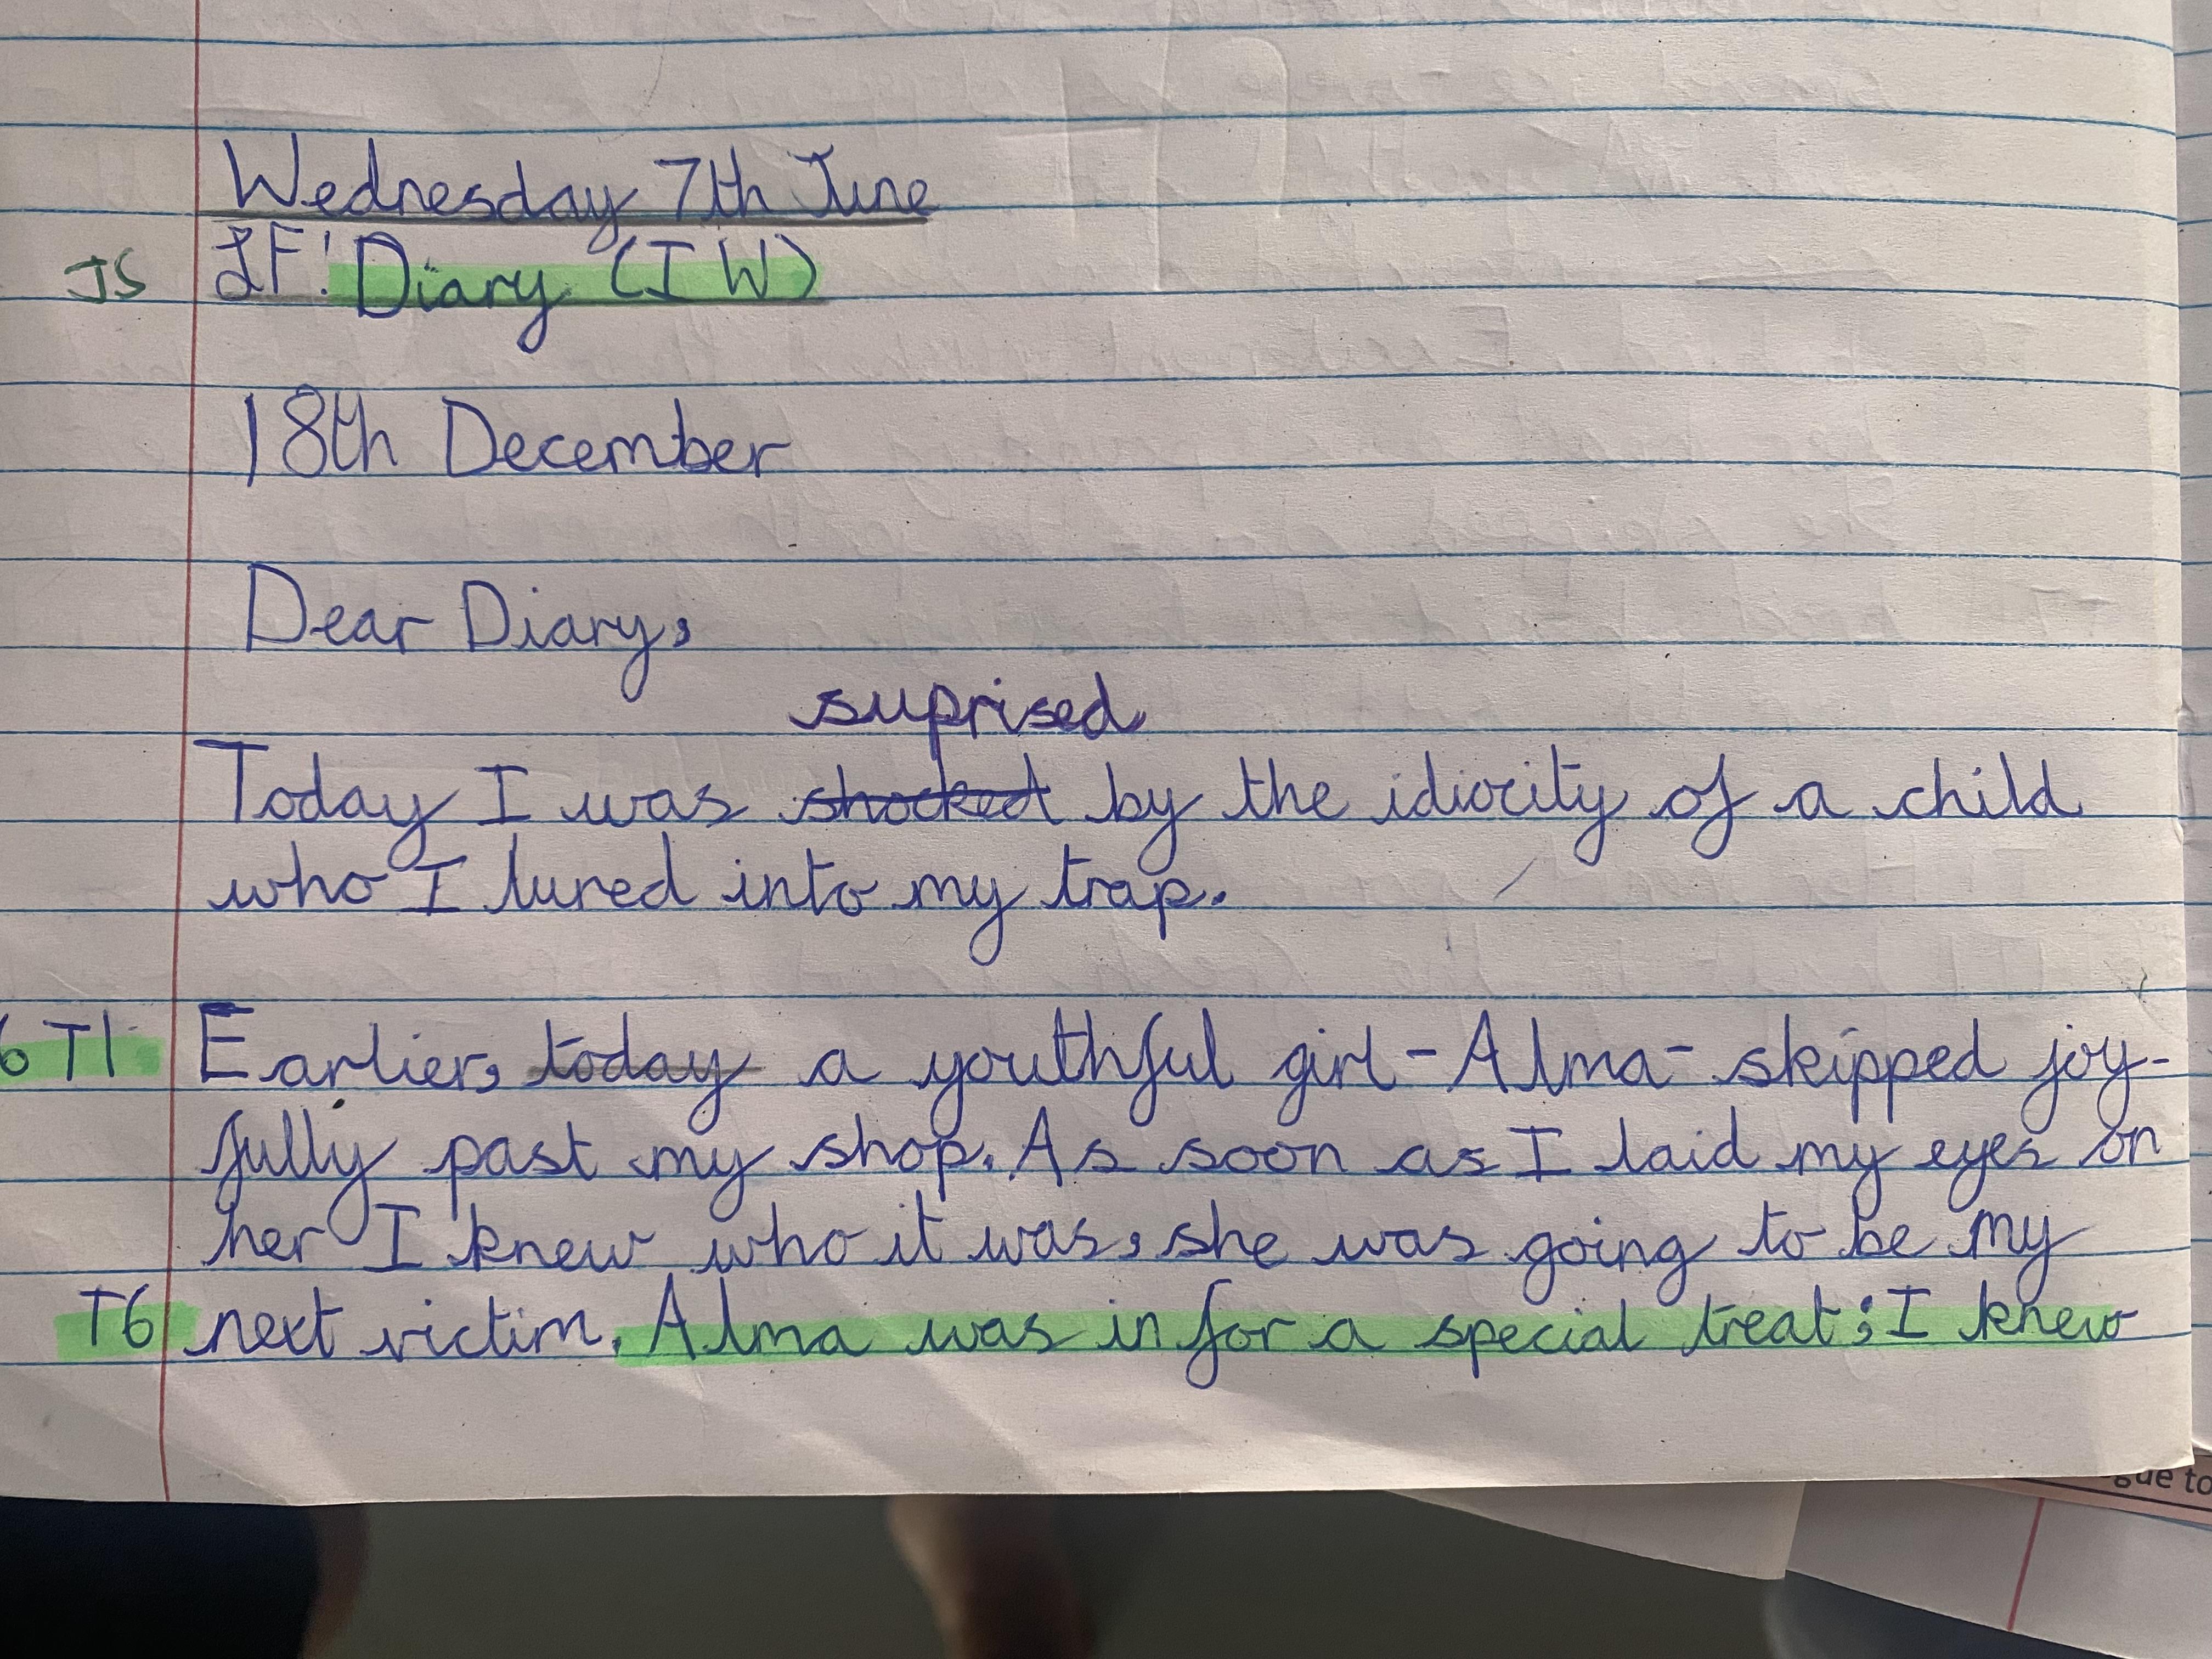 Wednesday 7th June
JS LF: Diary (IW)
18th December
Dear Diary,
suprised
Today I was shocked by the idiocity of a child
who I lured into my trap.
6 T1 Earlier, today a youthful girl - Alma - skipped joy-
fully past my shop. As soon as I laid my eyes on
her I knew who it was, she was going to be my
T6 next victim. Alma was in for a special treat; I knew
gue to